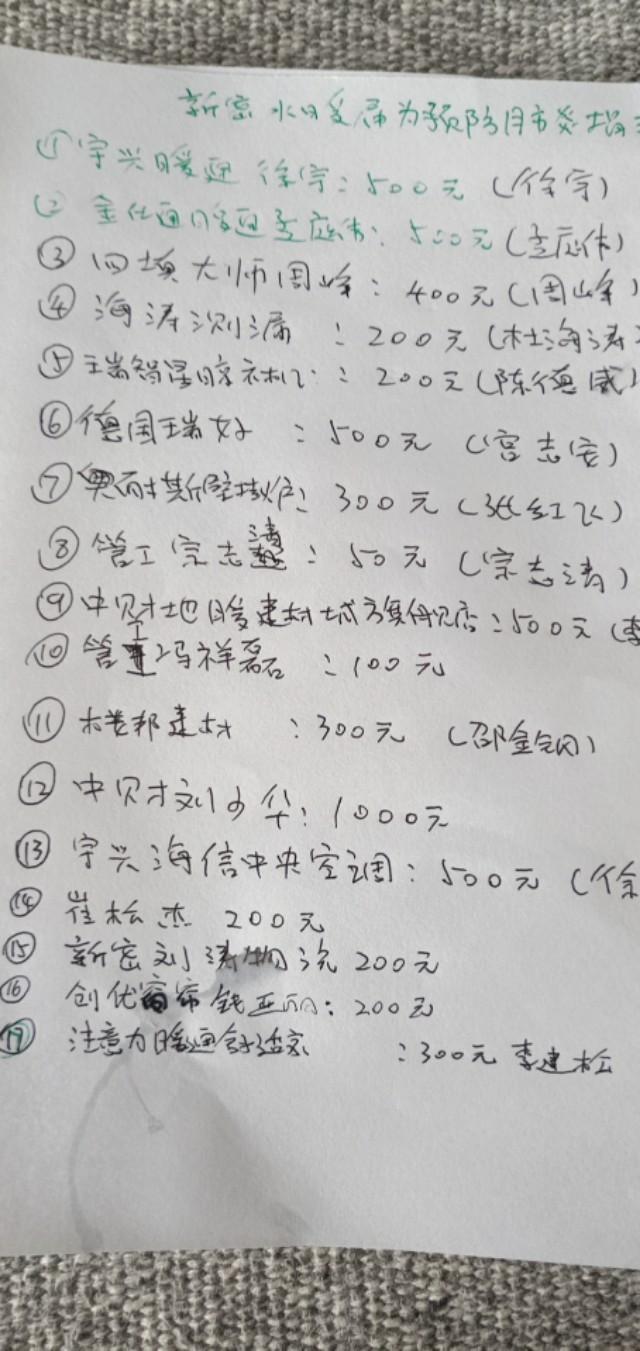 新密水暖届为预防肺炎捐
① 宇兴暖通 徐宇：500元（徐宇）
② 金仕通暖通 500元
③ 回填大师周峰：400元（周峰）
④ 海涛测漏：200元（杜海涛
⑤ 瑞智星暖：200元（陈德威）
⑥ 德国瑞好：500元（宫志安）
⑦ 奥耐斯壁挂炉：300元（张红飞）
⑧ 管工宗志清：50元（宗志清）
⑨ 中财地暖建材城旗舰店：500元（李
⑩ 管工冯祥磊：100元
⑪ 楼邦建材：300元（邵金钢）
⑫ 中财刘少华：1000元
⑬ 宇兴海信中央空调：500元（徐
⑭ 崔松杰 200元
⑮ 新密刘涛物流 200元
⑯ 创优窗帘钱亚丽：200元
⑰ 注意力暖通舒适家：300元 李建松